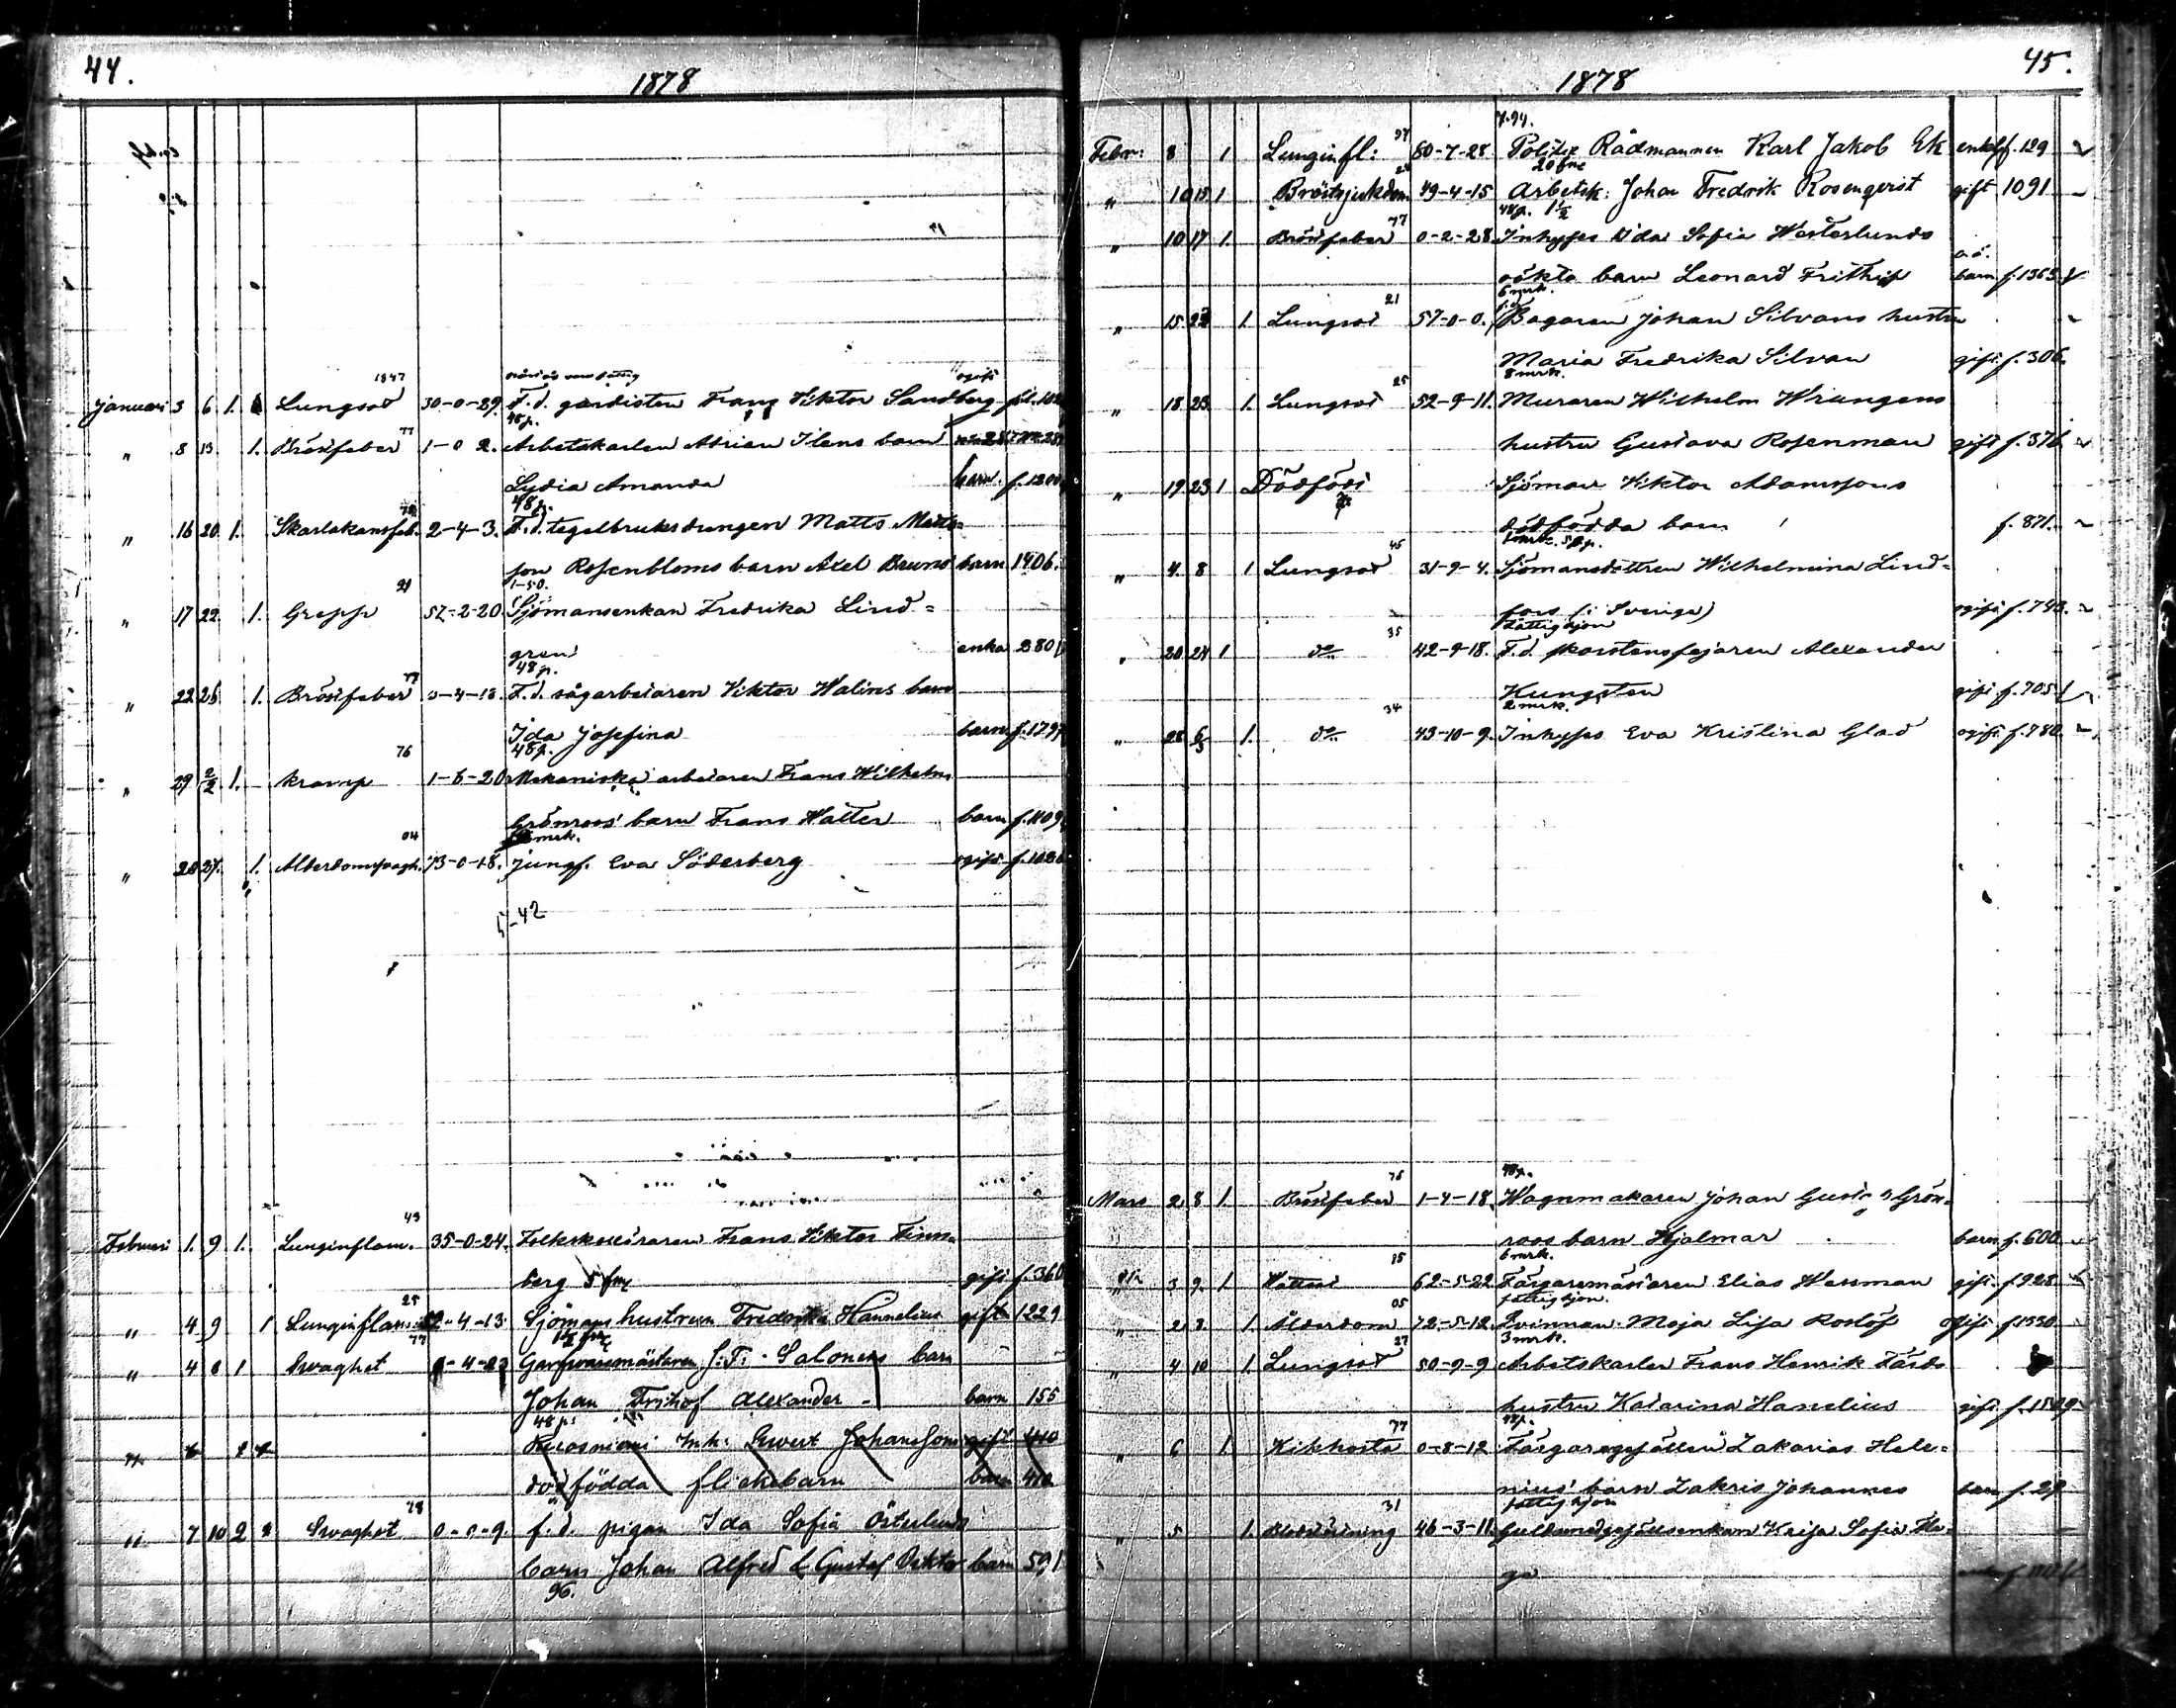 44.
1878
1847
ogift
Januari 3 6 1. Lungsot 30-0-29. F. d. gardisten Frans Viktor Sandberg
48 p.
77
" 8 13 1. Bröstfeber 1-0 2. Arbetskarlen Adrian Ilens barn
Lydia Amanda barn. f. 1200
48 p.
" 16 20 1. Skarlakansfeb. 2-4-3. F. d. tegelbruksdrengen Matts Matts-
son Rosenbloms barn Axel Bruno barn 1406.
1-50.
21
" 17 22. 1. Grepp 57-2-20 Sjömansenkan Fredrika Lind-
gren enka 280
48 p.
77
" 22 26 1. Bröstfeber 0-4-13. F. d. sågarbetaren Viktor Walins barn
Ida Josefina barn f. 1297
48 p.
76
" 29 2/2 1. kramp 1-6-20 Mekaniske arbetaren Frans Wilhelm
Grönroos' barn Frans Walter barn f. 1109
mrk.
04
" 20 27. 1. Ålderdomssvagh. 73-0-18. Jungf. Eva Söderberg ogift f.
5-42
43
Februari 1. 9 1. Lunginflam. 35-0-24. Folkskoleläraren Frans Viktor Finn-
berg 5 fmk gift f. 360
25
" 4 9 1 Lunginflam 52-4-13 Sjömans hustrun Fredrika Hannelius gift 1229
1½ fmk
77
" 4 8 1 Svaghet 0-4-23 Garfvaremästaren J: F: Salonens barn
Johan Frithof Alexander - barn 155
48 p:
Inh: Johansson gift 410
dödfödda flickebarn barn 410
78
" 7 10 2 Svaghet 0-0-9. f. d. pigan Ida Sofia Österlunds
barn Johan Alfred & Gustaf Viktor barn 591
96.
45.
1878
7.94.
97
Febr: 8 1 Lunginfl: 80-7-28 Politie Rådmannen Karl Jakob Ek enkl f. 129
20 fmk
28
" 10 15 1 Bröstsjukdom 49-4-15 Arbetsk: Johan Fredrik Rosenqvist gift 1091
48 p. 1½
77
" 10 17 1. Bröstfeber 0-2-28 Inhyses Ida Sofia Westerlunds
oäkta barn Leonard Frithiof barn f. 1363
6 mrk.
21
" 15 23 1. Lungsot 57-0-0. Bagaren Johan Silvans hustru
Maria Fredrika Silvan gift f. 306.
8 mrk.
25
" 18 23 1. Lungsot 52-9-11. Muraren Wilhelm Wrangens
hustru Gustava Rosenman gift f. 376
" 19 23 1 Dödfödt Sjöman Viktor Adamssons
dödfödda barn f. 871.
1 mrk. 50 p.
45
" 4. 8 1 Lungsot 31-9-4. Sjömansdottren Wilhelmina Lind-
fors (i Sverige) ogift f. 743.
fattighjon
35
" 20 24 1 do 42-9-18. F. d. skorstensfejaren Alexander
Kungsten gift f. 705
2 mrk.
34
" 28 6/3 1. do 43-10-9. Inhyses Eva Kristina Glad ogift f. 780.
48 p.
76
Mars 2 8 1. Bröstfeber 1-4-18. Wagnmakaren Johan Gustafs Grön-
roos barn Hjalmar barn f. 600
6 mrk.
15
" 3 9. 1 Vattsot 62-5-22 Färgaremästaren Elias Wessman gift. f. 928
fattighjon.
05
" 2 8. 1. Ålderdom 72-5-12. Qvinnan Maja Lisa Roslöf ogift f. 1530
3 mrk.
27
" 4 10 1. Lungsot 50-9-9 Arbetskarlen Frans Henrik Färds
hustru Katarina Hanelius gift f. 1549
48 p.
77
" 6 1. Kikhosta 0-8-12 Färgaregesällen Zakarias Hele-
nius' barn Zakris Johannes barn f. 27
fattighjon
31
" 5 1. Blodstörtning 46-3-11 Guldsmedsgesällsenkan Krisa Sofia Ha-
ga